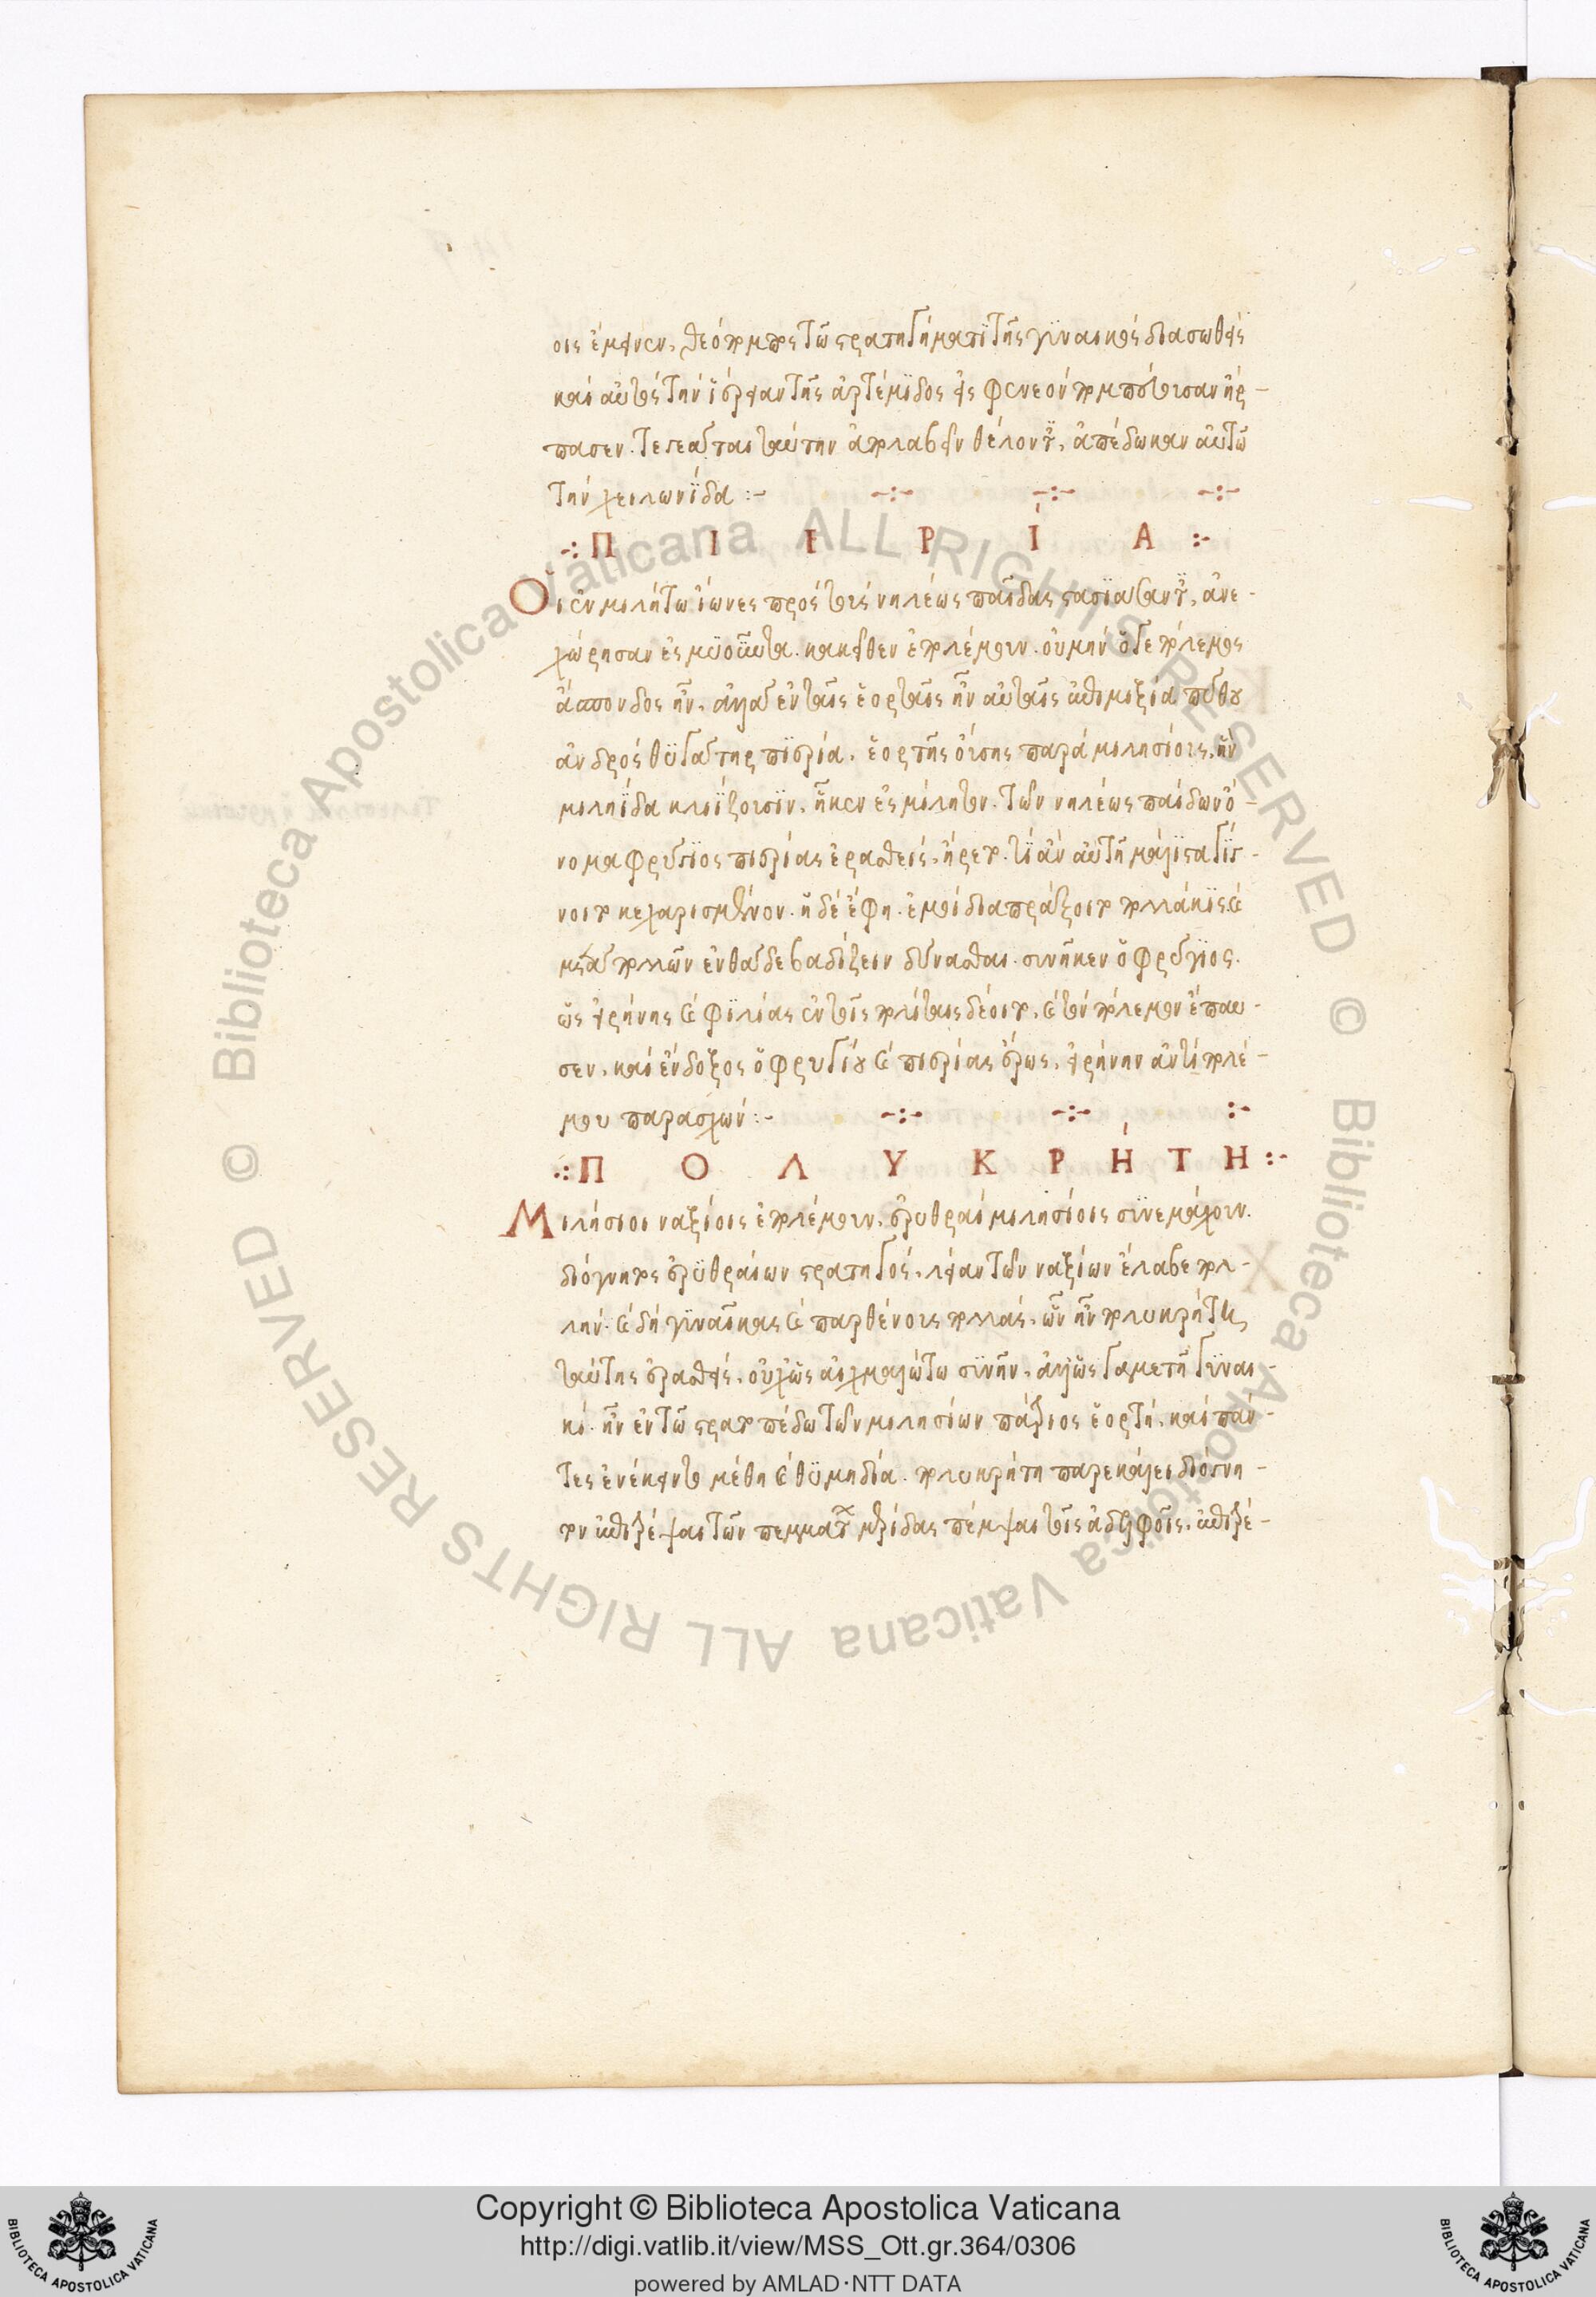 οις ἔμεινεν. θεόπομπος τῶ στρατηγήματι τῆς γυναικὸς διασωθεὶς
καὶ αὐτὸς τὴν ἱέρειαν τῆς ἀρτέμιδος εἰς φενεὸν πομπεύουσαν ἥρ-
πασεν. τεγεάται ταύτην ἀπολαβεῖν θέλοντες, ἀπέδωκαν αὐτῶ
τὴν χειλωνίδα :-
ΠΙΕΡΊΑ :-
Οἱ ἐν μιλήτω ἴωνες πρὸς τοὺς νηλέως παῖδας στασιάσαντες, ἀνε-
χώρησαν ἐς μυοῦντα. κακεῖθεν ἐπολέμουν. οὐ μὴν ὅγε πόλεμος
ἄσπονδος ἦν. ἀλλὰ ἐν ταῖς ἑορταῖς ἦν αὐταῖς ἐπιμιξία πύθου
ἀνδρὸς θυγάτηρ πιερία. ἑορτῆς οὔσης παρὰ μιλησίοις, ἣν
μιληΐδα κλῃΐζουσιν. ἧκεν ἐς μίλητον. τῶν νηλέως παίδων ὄ-
νομα φρύγιος πιερίας ἐρασθεὶς, ἤρετο. τί ἂν αὐτῆ μάλιστα γέ-
νοιτο κεχαρισμένον. ἡ δὲ ἔφη. ἐμοὶ διαπράξοιτο πολλάκις καὶ
μετὰ πολλῶν ἐνθάδε βαδίζειν δύνασθαι. συνῆκεν ὁ φρύγιος.
ὡς εἰρήνης καὶ φιλίας ἐν τοῖς πολίταις δέοιτο. καὶ τὸν πόλεμον ἔπαυ-
σεν. καὶ ἔνδοξος ὁ φρυγίου καὶ πιερίας ἔρως. εἰρήνην ἀντὶ πολέ-
μου παρασχών :-
ΠΟΛΥΚΡΉΤΗ :-
Μιλήσιοι ναξίοις ἐπολέμουν. ἐρυθραῖοι μιλησίοις συνεμάχουν.
διόγνητος ἐρυθραίων στρατηγὸς, λείαν τῶν ναξίων ἔλαβε πολ-
λήν. καὶ δὴ γυναῖκας καὶ παρθένους πολλάς. ὧν ἦν πολυκρήτη,
ταύτης ἐρασθεὶς. οὐχ ὡς αἰχμαλώτω συνῆν. ἀλλ' ὡς γαμετῆ γυναι-
κί. ἦν ἐν τῶ στρατοπέδω τῶν μιλησίων πάτριος ἑορτή. καὶ πάν-
τες ἐνέκειντο μέθη καὶ θυμηδία. πολυκρήτη παρεκάλει διόγνη-
τον ἐπιτρέψαι τῶν πεμμάτων μερίδας πέμψαι τοῖς ἀδελφοῖς. ἐπιτρέ-
Copyright © Biblioteca Apostolica Vaticana
http://digi.vatlib.it/view/MSS_Ott.gr.364/0306
powered by AMLAD·NTT DATA